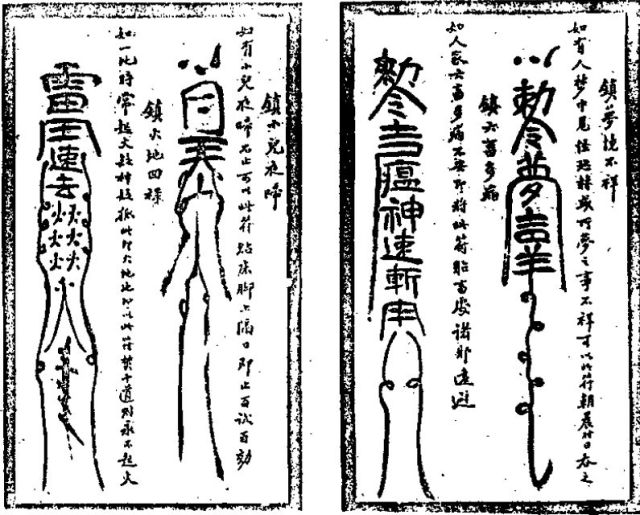 鎮夢境不祥
如有人夢中見怪恐或所夢之事不祥可以此符朝晨日吞之
敕令夢吉羊
鎮六畜多病
如人家六畜多病不安即將此符貼畜處諸邪遠避
勅令瘟神速斬
鎮小兒夜啼
如有小兒夜啼不止可以此符貼床脚上隔日即止百試百効
鎮火地回祿
如一時常起火此即火地也以此符焚十道則永不起火
雷速去
火火火火火火